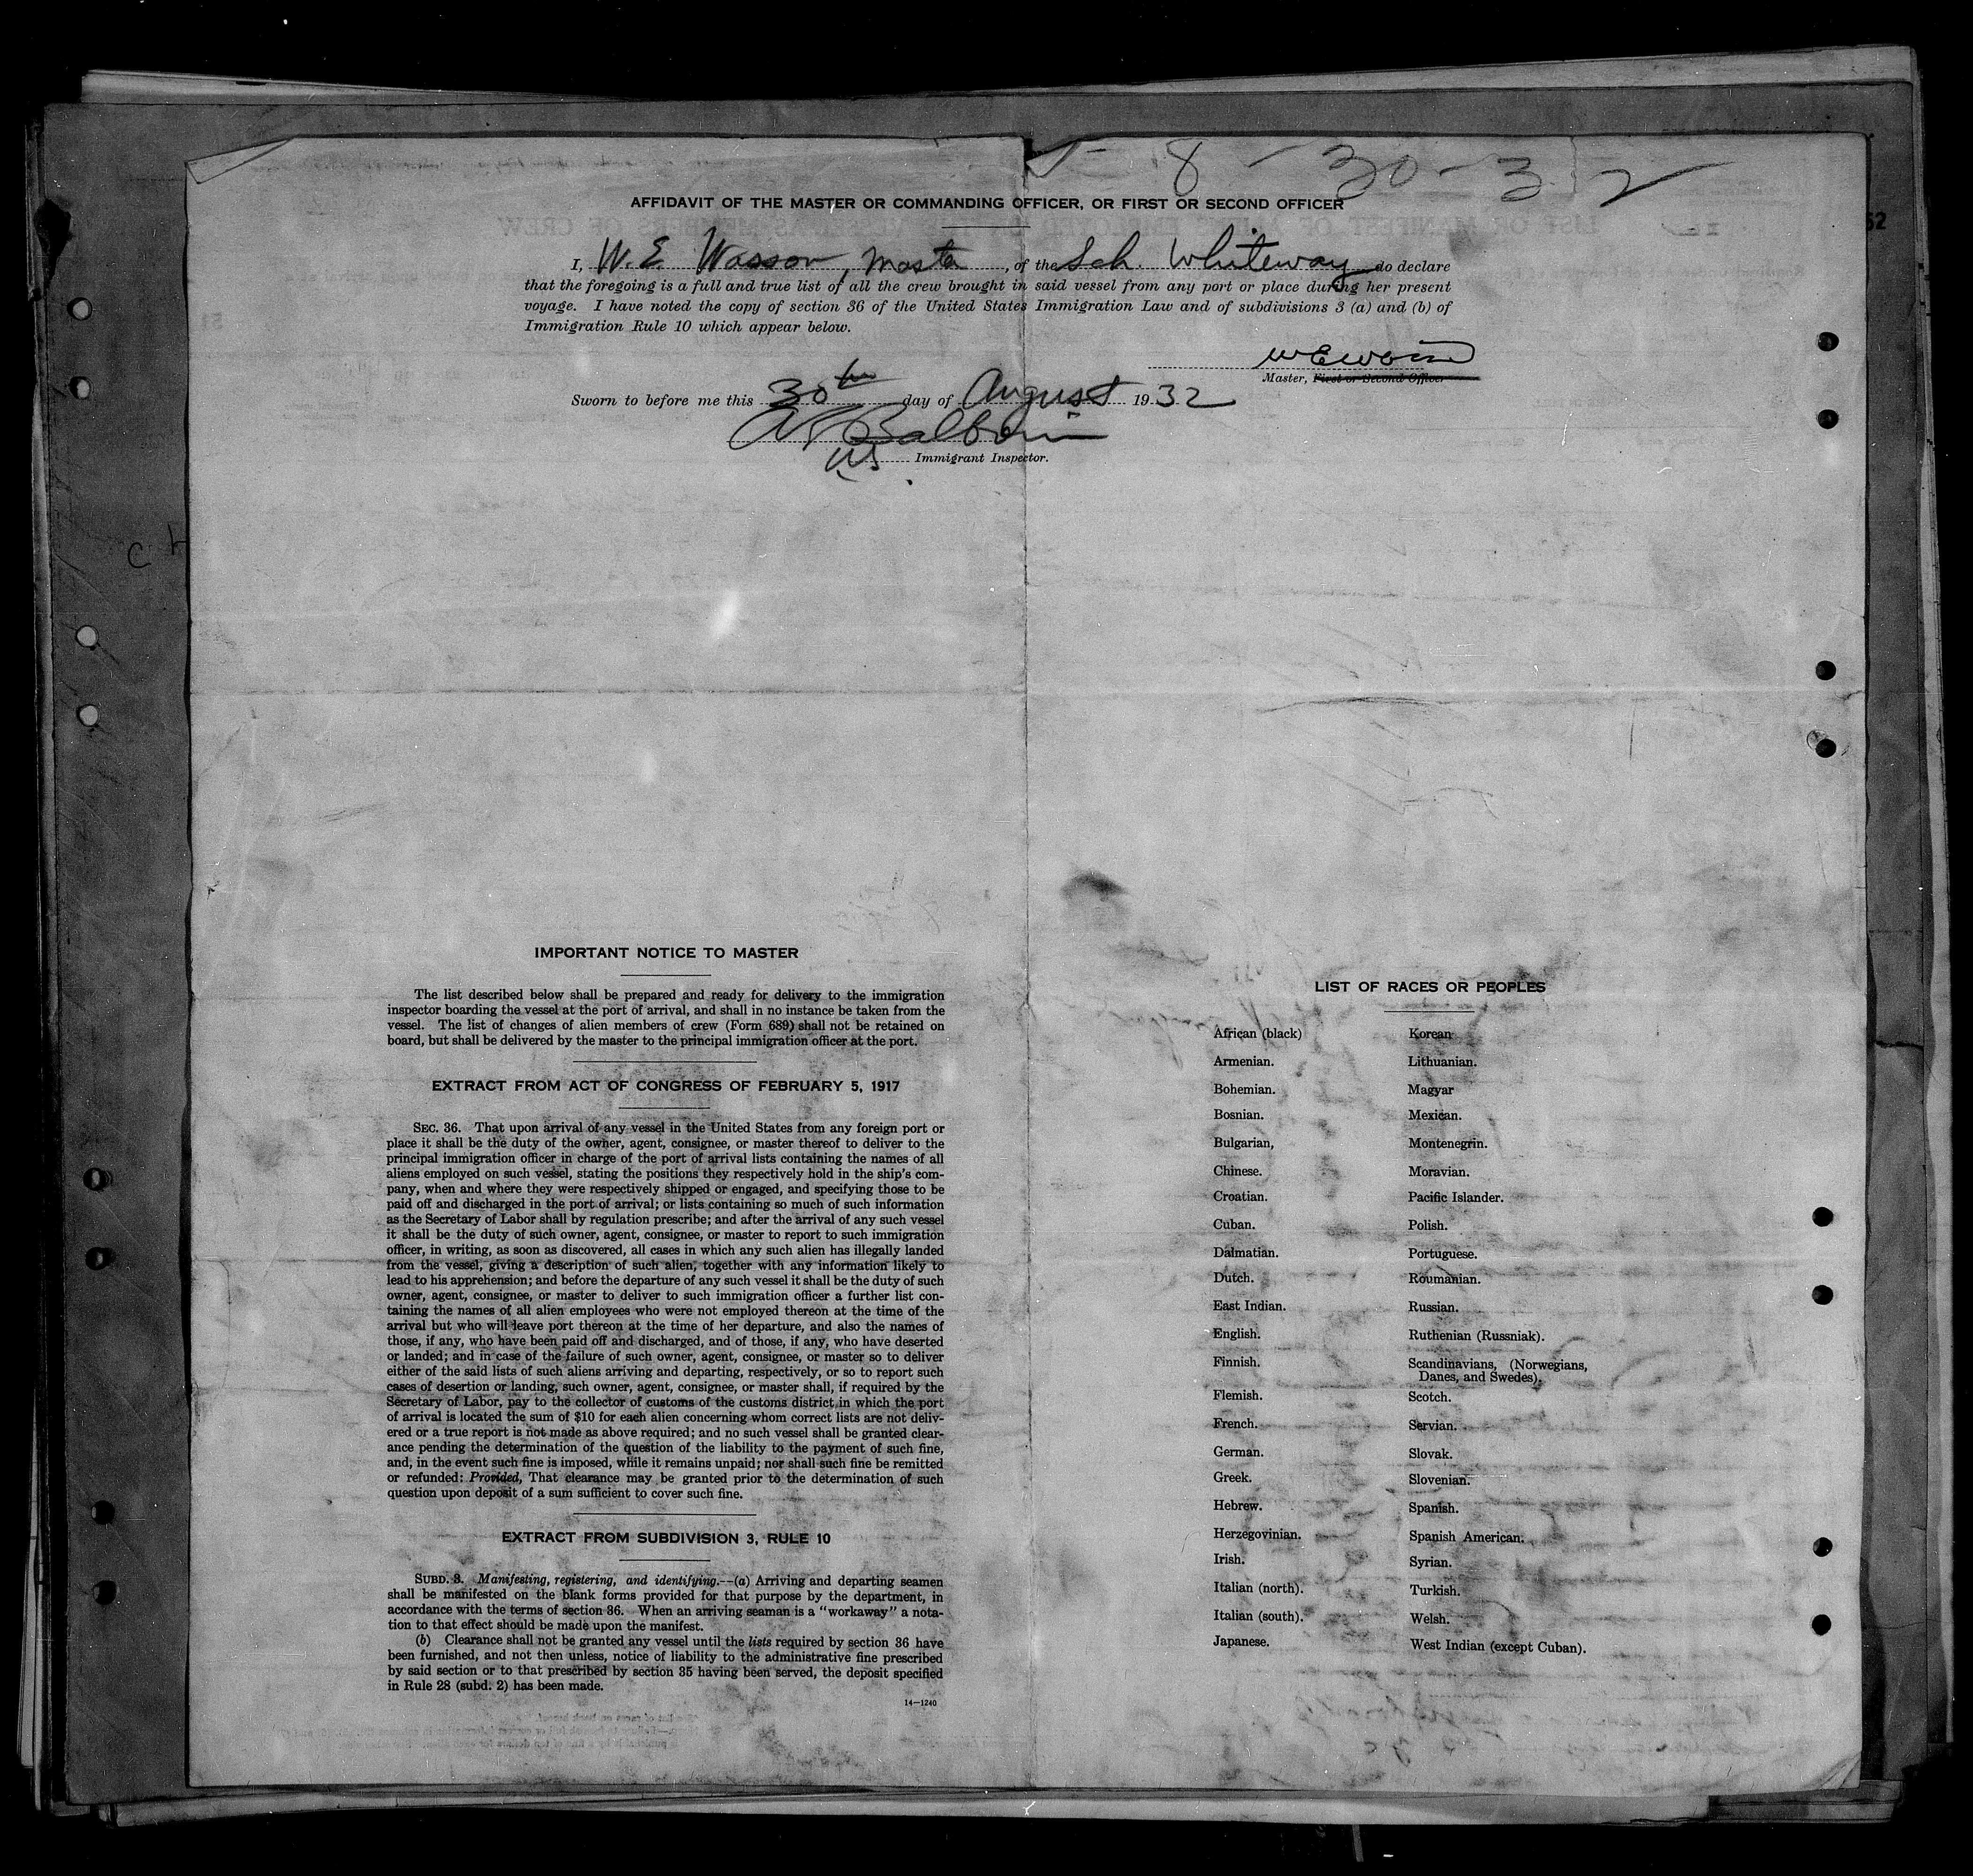 8-30-32
AFFIDAVIT OF THE MASTER OR COMMANDING OFFICER, OR FIRST OR SECOND OFFICER
I, W. E. Wasson, Master, of the Sch. Whiteway do declare
that the foregoing is a full and true list of all the crew brought in said vessel from any port or place during her present
voyage. I have noted the copy of section 36 of the United States Immigration Law and of subdivisions 3 (a) and (b) of
Immigration Rule 10 which appear below.
Master, First or Second Officer
Sworn to before me this 30th day of August 1932
Immigrant Inspector.
IMPORTANT NOTICE TO MASTER
The list described below shall be prepared and ready for delivery to the immigration
inspector boarding the vessel at the port of arrival, and shall in no instance be taken from the
vessel. The list of changes of alien members of crew (Form 689) shall not be retained on
board, but shall be delivered by the master to the principal immigration officer at the port.
EXTRACT FROM ACT OF CONGRESS OF FEBRUARY 5, 1917
SEC. 36. That upon arrival of any vessel in the United States from any foreign port or
place it shall be the duty of the owner, agent, consignee, or master thereof to deliver to the
principal immigration officer in charge of the port of arrival lists containing the names of all
aliens employed on such vessel, stating the positions they respectively hold in the ship's com-
pany, when and where they were respectively shipped or engaged, and specifying those to be
paid off and discharged in the port of arrival; or lists containing so much of such information
as the Secretary of Labor shall by regulation prescribe; and after the arrival of any such vessel
it shall be the duty of such owner, agent, consignee, or master to report to such immigration
officer, in writing, as soon as discovered, all cases in which any such alien has illegally landed
from the vessel, giving a description of such alien, together with any information likely to
lead to his apprehension; and before the departure of any such vessel it shall be the duty of such
owner, agent, consignee, or master to deliver to such immigration officer a further list con-
taining the names of all alien employees who were not employed thereon at the time of the
arrival but who will leave port thereon at the time of her departure, and also the names of
those, if any, who have been paid off and discharged, and of those, if any, who have deserted
or landed; and in case of the failure of such owner, agent, consignee, or master so to deliver
either of the said lists of such aliens arriving and departing, respectively, or so to report such
cases of desertion or landing, such owner, agent, consignee, or master shall, if required by the
Secretary of Labor, pay to the collector of customs of the customs district in which the port
of arrival is located the sum of $10 for each alien concerning whom correct lists are not deliv-
ered or a true report is not made as above required; and no such vessel shall be granted clear-
ance pending the determination of the question of the liability to the payment of such fine,
and, in the event such fine is imposed, while it remains unpaid; nor shall such fine be remitted
or refunded: Provided, That clearance may be granted prior to the determination of such
question upon deposit of a sum sufficient to cover such fine.
EXTRACT FROM SUBDIVISION 3, RULE 10
SUBD. 3. Manifesting, registering, and identifying.--(a) Arriving and departing seamen
shall be manifested on the blank forms provided for that purpose by the department, in
accordance with the terms of section 36. When an arriving seaman is a "workaway" a nota-
tion to that effect should be made upon the manifest.
(b) Clearance shall not be granted any vessel until the lists required by section 36 have
been furnished, and not then unless, notice of liability to the administrative fine prescribed
by said section or to that prescribed by section 35 having been served, the deposit specified
in Rule 28 (subd. 2) has been made.
14-1240
LIST OF RACES OR PEOPLES
African (black)
Armenian.
Bohemian.
Bosnian.
Bulgarian,
Chinese.
Croatian.
Cuban.
Dalmatian.
Dutch.
East Indian.
English.
Finnish.
Flemish.
French.
German.
Greek.
Hebrew.
Herzegovinian.
Irish.
Italian (north).
Italian (south).
Japanese.
Korean
Lithuanian.
Magyar
Mexican.
Montenegrin.
Moravian.
Pacific Islander.
Polish.
Portuguese.
Roumanian.
Russian.
Ruthenian (Russniak).
Scandinavians, (Norwegians,
Danes, and Swedes).
Scotch.
Servian.
Slovak.
Slovenian.
Spanish.
Spanish American.
Syrian.
Turkish.
Welsh.
West Indian (except Cuban).